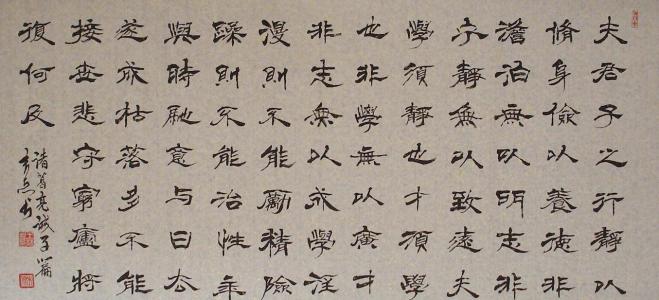 夫君子之行靜以
脩身儉以養德非
澹泊無以明志非
宁靜無以致遠夫
學須靜也才須學
也非學無以廣才
非志無以成學淫
漫則不能勵精險
躁則不能治性年
與時馳意与日去
遂成枯落多不能
接世悲守窮廬將
復何及
諸葛亮誡子篇